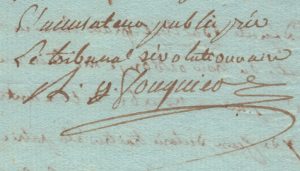 L'accusateur public près
Le tribunal révolutionnaire
Fouquier